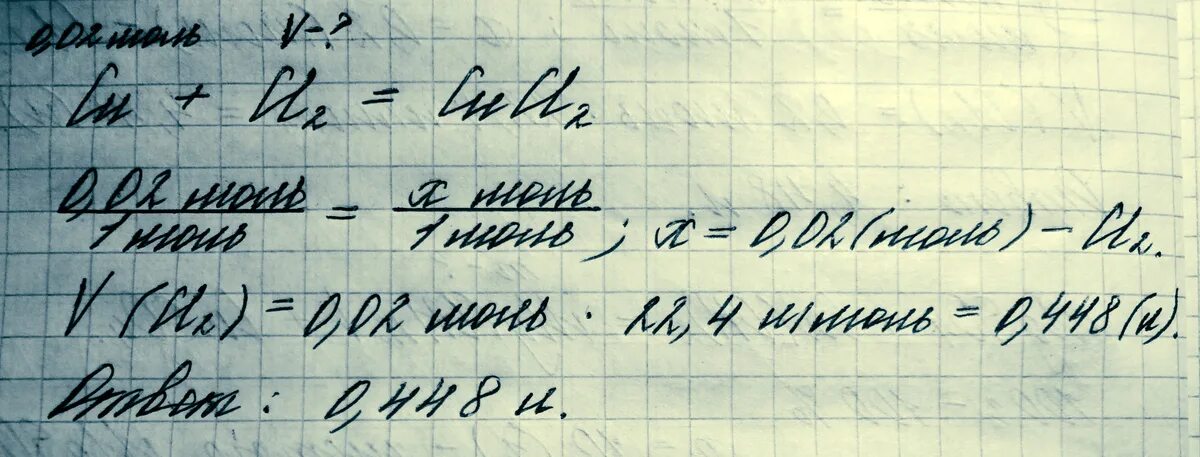 0,02 моль V-?
Cu + Cl₂ = CuCl₂
0,02 моль / 1 моль = x моль / 1 моль ; x = 0,02 (моль) – Cl₂.
V (Cl₂) = 0,02 моль · 22,4 л/моль = 0,448 (л).
Ответ: 0,448 л.